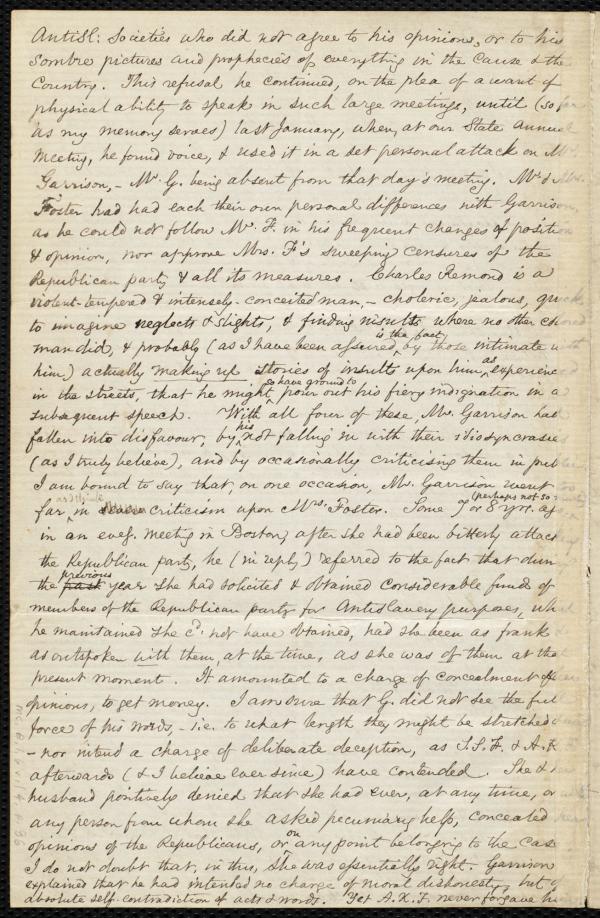 AntiSl: Societies who did not agree to his opinions, or to his
sombre pictures and prophecies of everything in the Cause & the
Country. This refusal he continued, on the plea of a want of
physical ability to speak in such large meetings, until (so far
as my memory serves) last January, when, at our State Annual
Meeting, he found voice, & used it in a set personal attack on Mr.
Garrison, - Mr. G. being absent from that day's meeting. Mr. & Mrs.
Foster had had each their own personal differences with Garrison,
as he could not follow Mr. F. in his frequent changes of position
& opinion, nor approve Mrs. F's sweeping censures of the
Republican party & all its measures. Charles Remond is a
violent-tempered & intensely-conceited man, - choleric, jealous, quick
to imagine neglects & slights, & finding insults where no other colored
man did, & probably (as I have been assured is the fact, by those intimate with
him) actually making up stories of insult upon him, as experienced
in the streets, that he might, so have ground to pour out his fiery indignation in a
subsequent speech. With all four of these, Mr. Garrison had
fallen into disfavour, by his not falling in with their idiosyncrasies
(as I truly believe), and by occasionally criticising them in public.
I am bound to say that, on one occasion, Mr. Garrison went
far, as I think in criticism upon Mrs. Foster. Some 7 or 8 yrs. ago (perhaps not so
in an eveg. meeting in Boston, after she had been bitterly attacking
the Republican party, he (in reply) referred to the fact that during
the past previous year she had solicited & obtained considerable funds of
members of the Republican party for Antislavery purposes, which
he maintained she cd. not have obtained, had she been as frank &
as outspoken with them, at the time, as she was of them at that
present moment. It amounted to a charge of concealment of
opinions, to get money. I am sure that G. did not see the full
force of his words, - i.e. to what length they might be stretched
- nor intend a charge of deliberate deception, as S.S.F. & A.K.
afterwards (& I believe ever since) have contended. She & her
husband positively denied that she had ever, at any time, or
any person from whom she asked pecuniary help, concealed
opinions of the Republicans, or on any point belonging to the case
I do not doubt that, in this, she was essentially right. Garrison
explained that he had intended no charge of moral dishonesty, but
absolute self-contradiction of acts & words. Yet A.K.F. never forgave him